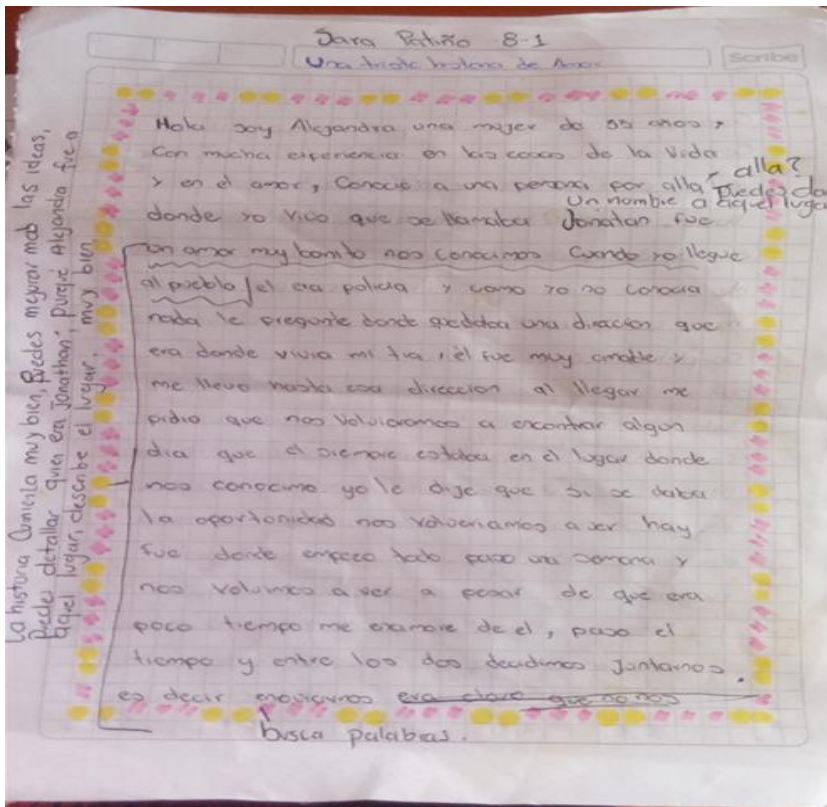 Sara Patiño 8-1
Una triste historia de Amor
Scribe
Hola soy Alejandra una mujer de 55 años y
con mucha experiencia en las cosas de la vida
y en el amor, Conocí a una persona por alla
alla?
Puedes da
un nombre a aquel luga
donde yo vivo que se llamaba Jonatan fue
un amor muy bonito nos conocimos Cuando yo llegue
al pueblo el era policia y como yo no conocia
nada le pregunte donde quedaba una direcion que
era donde vivia mi tia, él fue muy amable y
me llevo hasta esa direccion al llegar me
pidio que nos volvieramos a encontrar algun
dia que el siempre estaba en el lugar donde
nos conocimo yo le dije que si se daba
la oportonidad nos volveriamos a ver hay
fue donde empezo todo paso una semana y
nos volvimos a ver a pesar de que era
poco tiempo me enamore de el, paso el
tiempo y entre los dos decidimos Juntarnos.
es decir era claro que no nos
busca palabras.
La historia Comienza muy bien, puedes mejorar mas las ideas,
puedes detallar quien era Jonathan, purqué Alejandra fue a
aquel lugar, describe el lugar. muy bien